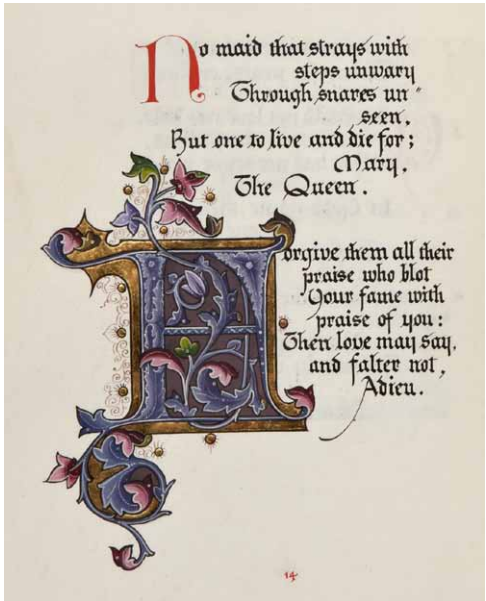 No maid that strays with
steps unwary
Through snares un"
seen,
But one to live and die for;
Mary,
The Queen.
Forgive them all their
praise who blot
Your fame with
praise of you:
Then love may say,
and falter not,
Adieu.
14